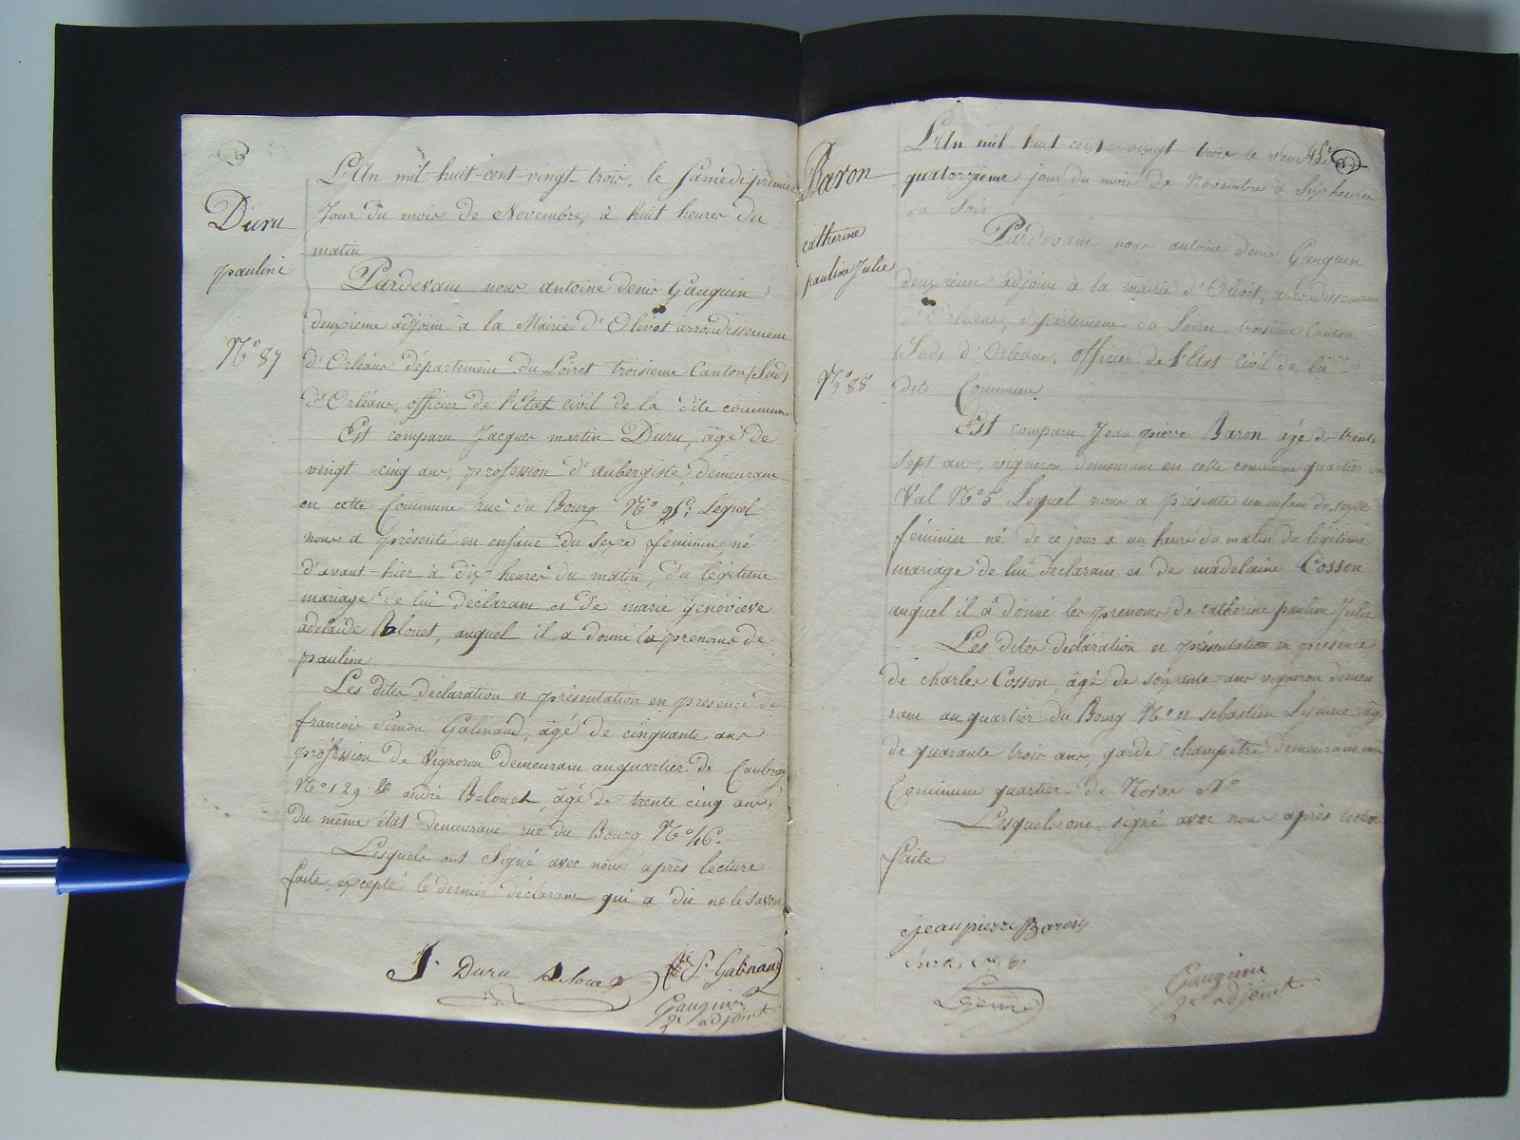 Duru
pauline
N.º 87
L'An mil huit-cent-vingt-trois, le samedi premier
Jour du mois de Novembre, à huit heures du
matin
Pardevant nous antoine denis Gauguin
deuxieme adjoint à la Mairie d'Olivet arrondissement
d'Orléans département du Loiret troisieme Canton (Sud)
d'Orléans, officier de l'état civil de la dite commune
Est comparu Jacques martin Duru, âgé de
vingt cinq ans, profession d'aubergiste, demeurant
en cette Commune rue du Bourg N.º Lequel
nous a présenté un enfant du Sexe féminin, né
d'avant-hier à dix heures du matin, du légitime
mariage de lui déclarant et de marie géneviève
adelaide Blouet, auquel il a donné les prenoms de
pauline
Les dites déclaration et présentation en présence de
françois Simon Galinand, âgé de cinquante ans
profession de Vigneron demeurant au quartier de
N.º 129 et andré Belouet, âgé de trente cinq ans,
du même état demeurant rue du Bourg N.º 46.
Lesquels ont Signé avec nous après lecture
faite, excepté le dernier déclarant qui a dit ne le savoir
J. Duru Belouet S. Galinand
Gauguin
2e adjoint
Baron
catherine
pauline Julie
N.º 88
L'An mil huit cent vingt trois le
quatorzieme jour du mois de Novembre à Six heures
du Soir
Pardevant nous antoine denis Gauguin
deuxieme adjoint à la mairie d'Olivet, arrondissement
d'Orléans, département du Loiret troisieme Canton
(Sud) d'Orléans, officier de l'état civil de la
dite Commune
Est comparu Jean pierre Baron âgé de trente
sept ans, vigneron demeurant en cette commune quartier du
Val N.º 5 Lequel nous a présenté un enfant du sexe
féminin né de ce jour à un heure du matin du légitime
mariage de lui déclarant et de madelaine Cosson
auquel il a donné les prenoms de catherine pauline Julie
Les dites déclaration et présentation en présence
de charles Cosson, âgé de soixante ans vigneron demeu
rant au quartier du Bourg N.º et sebastien Lejeune âgé
de quarante trois ans, garde champêtre demeurant en
Commune quartier de N.º
Lesquels ont signé avec nous après lecture
faite
jean pierre Baron
Lejeune
Gauguin
2e adjoint